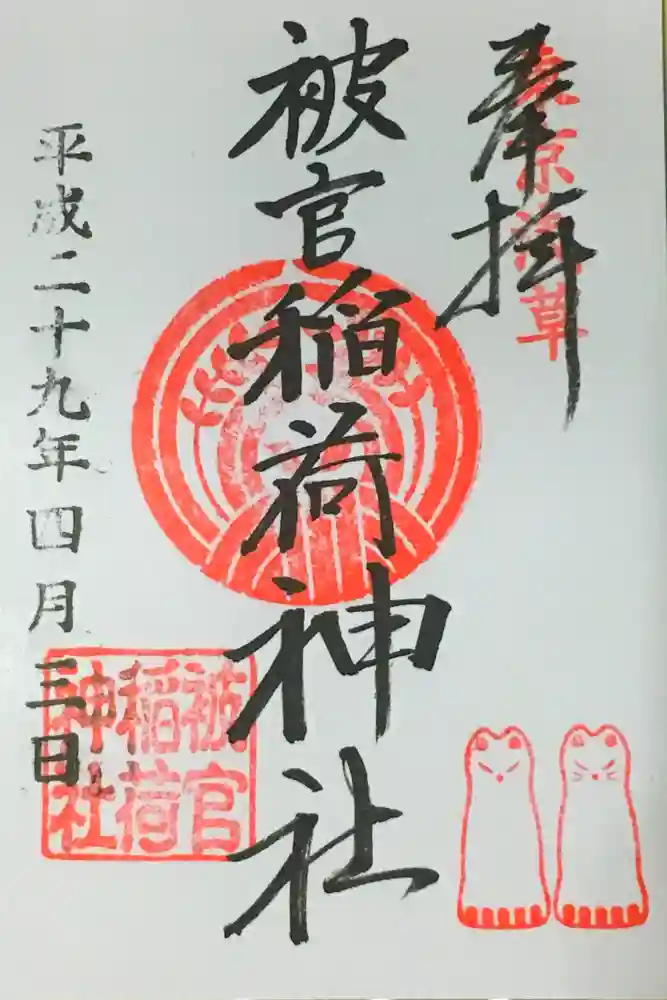 奉拝
東京浅草
被官稲荷神社
被官
稲荷
神社
平成二十九年四月三日